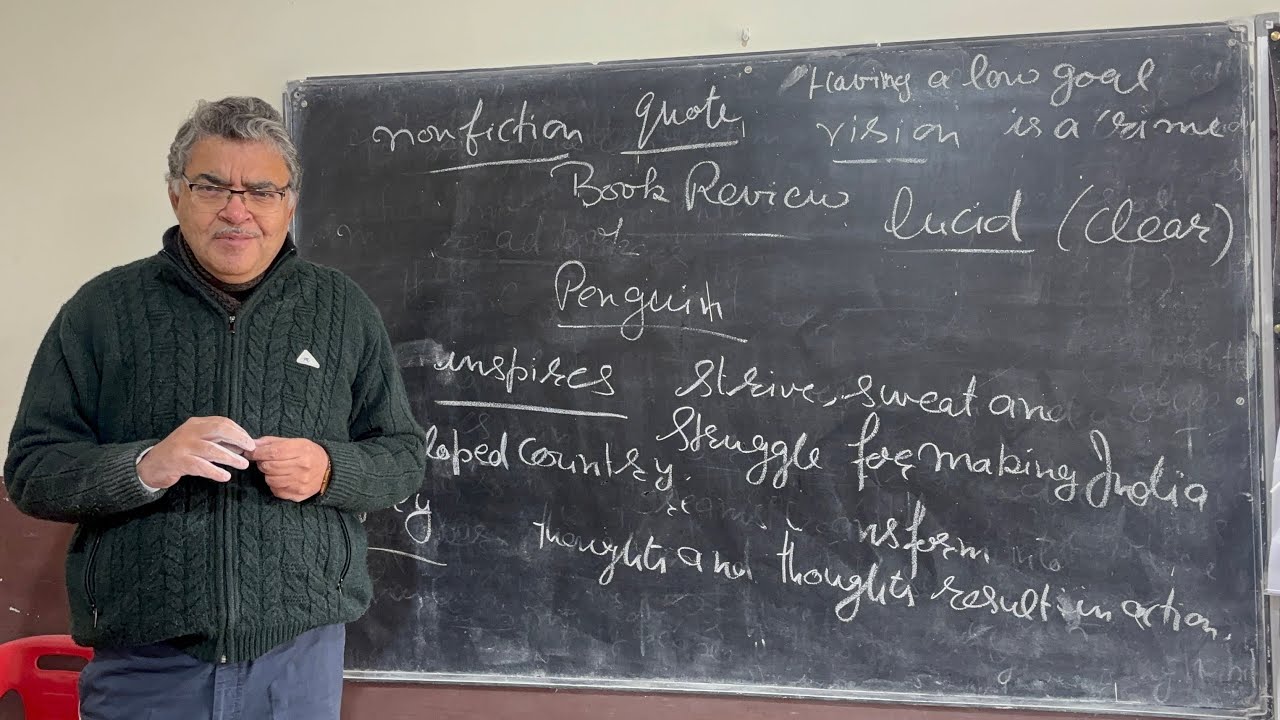 Having a low goal
nonfiction quote, vision is a crime
Book Review lucid (clear)
Penguin
inspires strive, sweat and
loped country. struggle for making India
nsform into
thoughts and thoughts result in action.